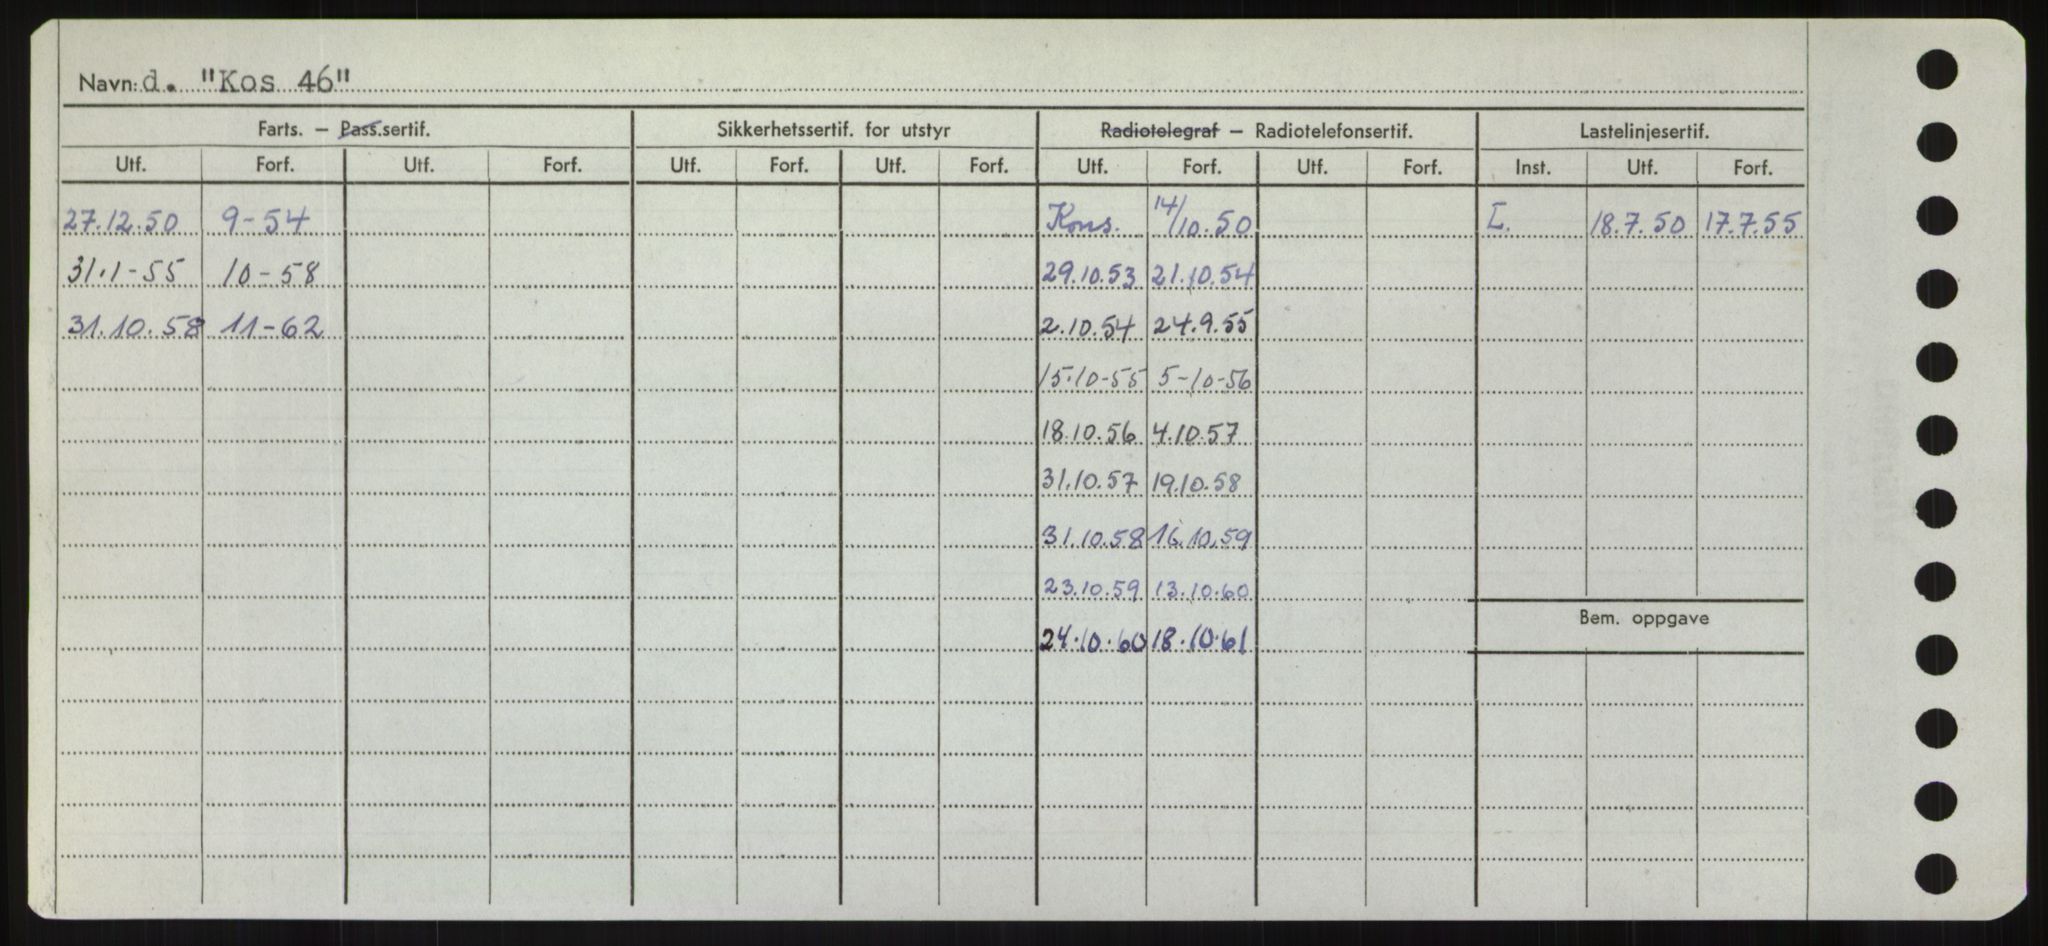 Navn: d. "Kos 46"
Farts. — Pass.sertif. Sikkerhetssertif. for utstyr Radiotelegraf — Radiotelefonsertif. Lastelinjesertif.
Utf. Forf. Utf. Forf. Utf. Forf. Utf. Forf. Utf. Forf. Utf. Forf. Inst. Utf. Forf.
27.12.50 9-54 Kons. 14/10.50 I. 18.7.50 17.7.55
31.1-55 10-58 29.10.53 21.10.54
31.10.58 11-62 2.10.54 24.9.55
15.10-55 5-10-56
18.10.56 4.10.57
31.10.57 19.10.58
31.10.58 16.10.59
23.10.59 13.10.60
Bem. oppgave
24.10.60 18.10.61